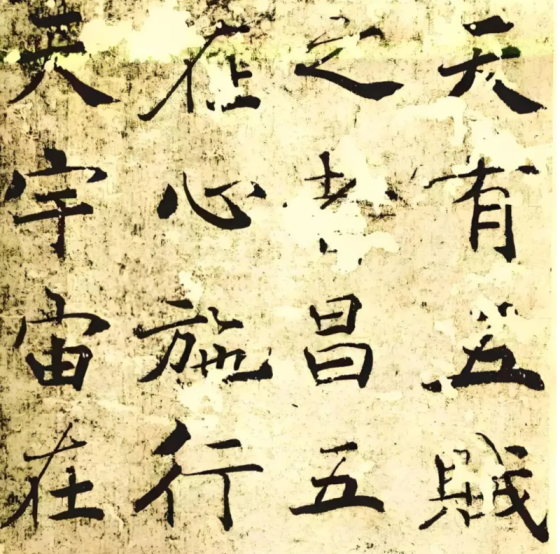 天有五賊
之者昌五
在心施行
天宇宙在